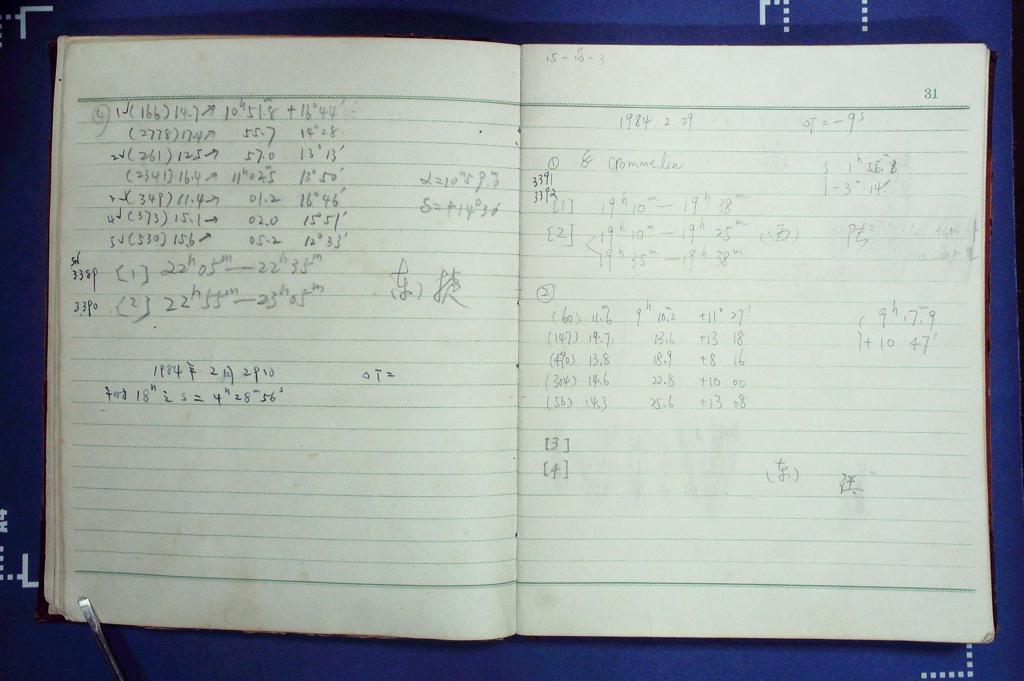 ④ 1√(166) 14.7↗ 10ʰ51.ᵐ8 +16°44′
(2778) 17.4↗ 55.7 14°28
2√(261) 12.5↗ 57.0 13°13′
(2341) 16.4↗ 11ʰ02.ᵐ5 13°50′
(349) 11.4↗ 01.2 16°46′
4√(373) 15.1↗ 02.0 15°51′
5√(530) 15.6↗ 05.2 12°33′
3389 [1] 22ʰ05ᵐ—22ʰ35ᵐ
3390 [2] 22ʰ55ᵐ—23ʰ05ᵐ
(东) 捷
1984年2月29日 ΔT=
18ʰ之 S = 4ʰ28ᵐ56ˢ
15-18-3
31
1984.2.29 ΔT=-9ˢ
① Crommelin
3391
3392
[1] 19ʰ10ᵐ—19ʰ38ᵐ
[2] 19ʰ10ᵐ—19ʰ25ᵐ (西)
19ʰ35ᵐ—19ʰ38ᵐ
②
(60) 11.6 9ʰ10.2 +11°27′
(147) 14.7 13.6 +13 18
(490) 13.8 18.9 +8 16
(304) 14.6 22.8 +10 00
(56) 14.3 25.6 +13 08
9ʰ17.ᵐ9
+10 47′
[3]
[4] (东)